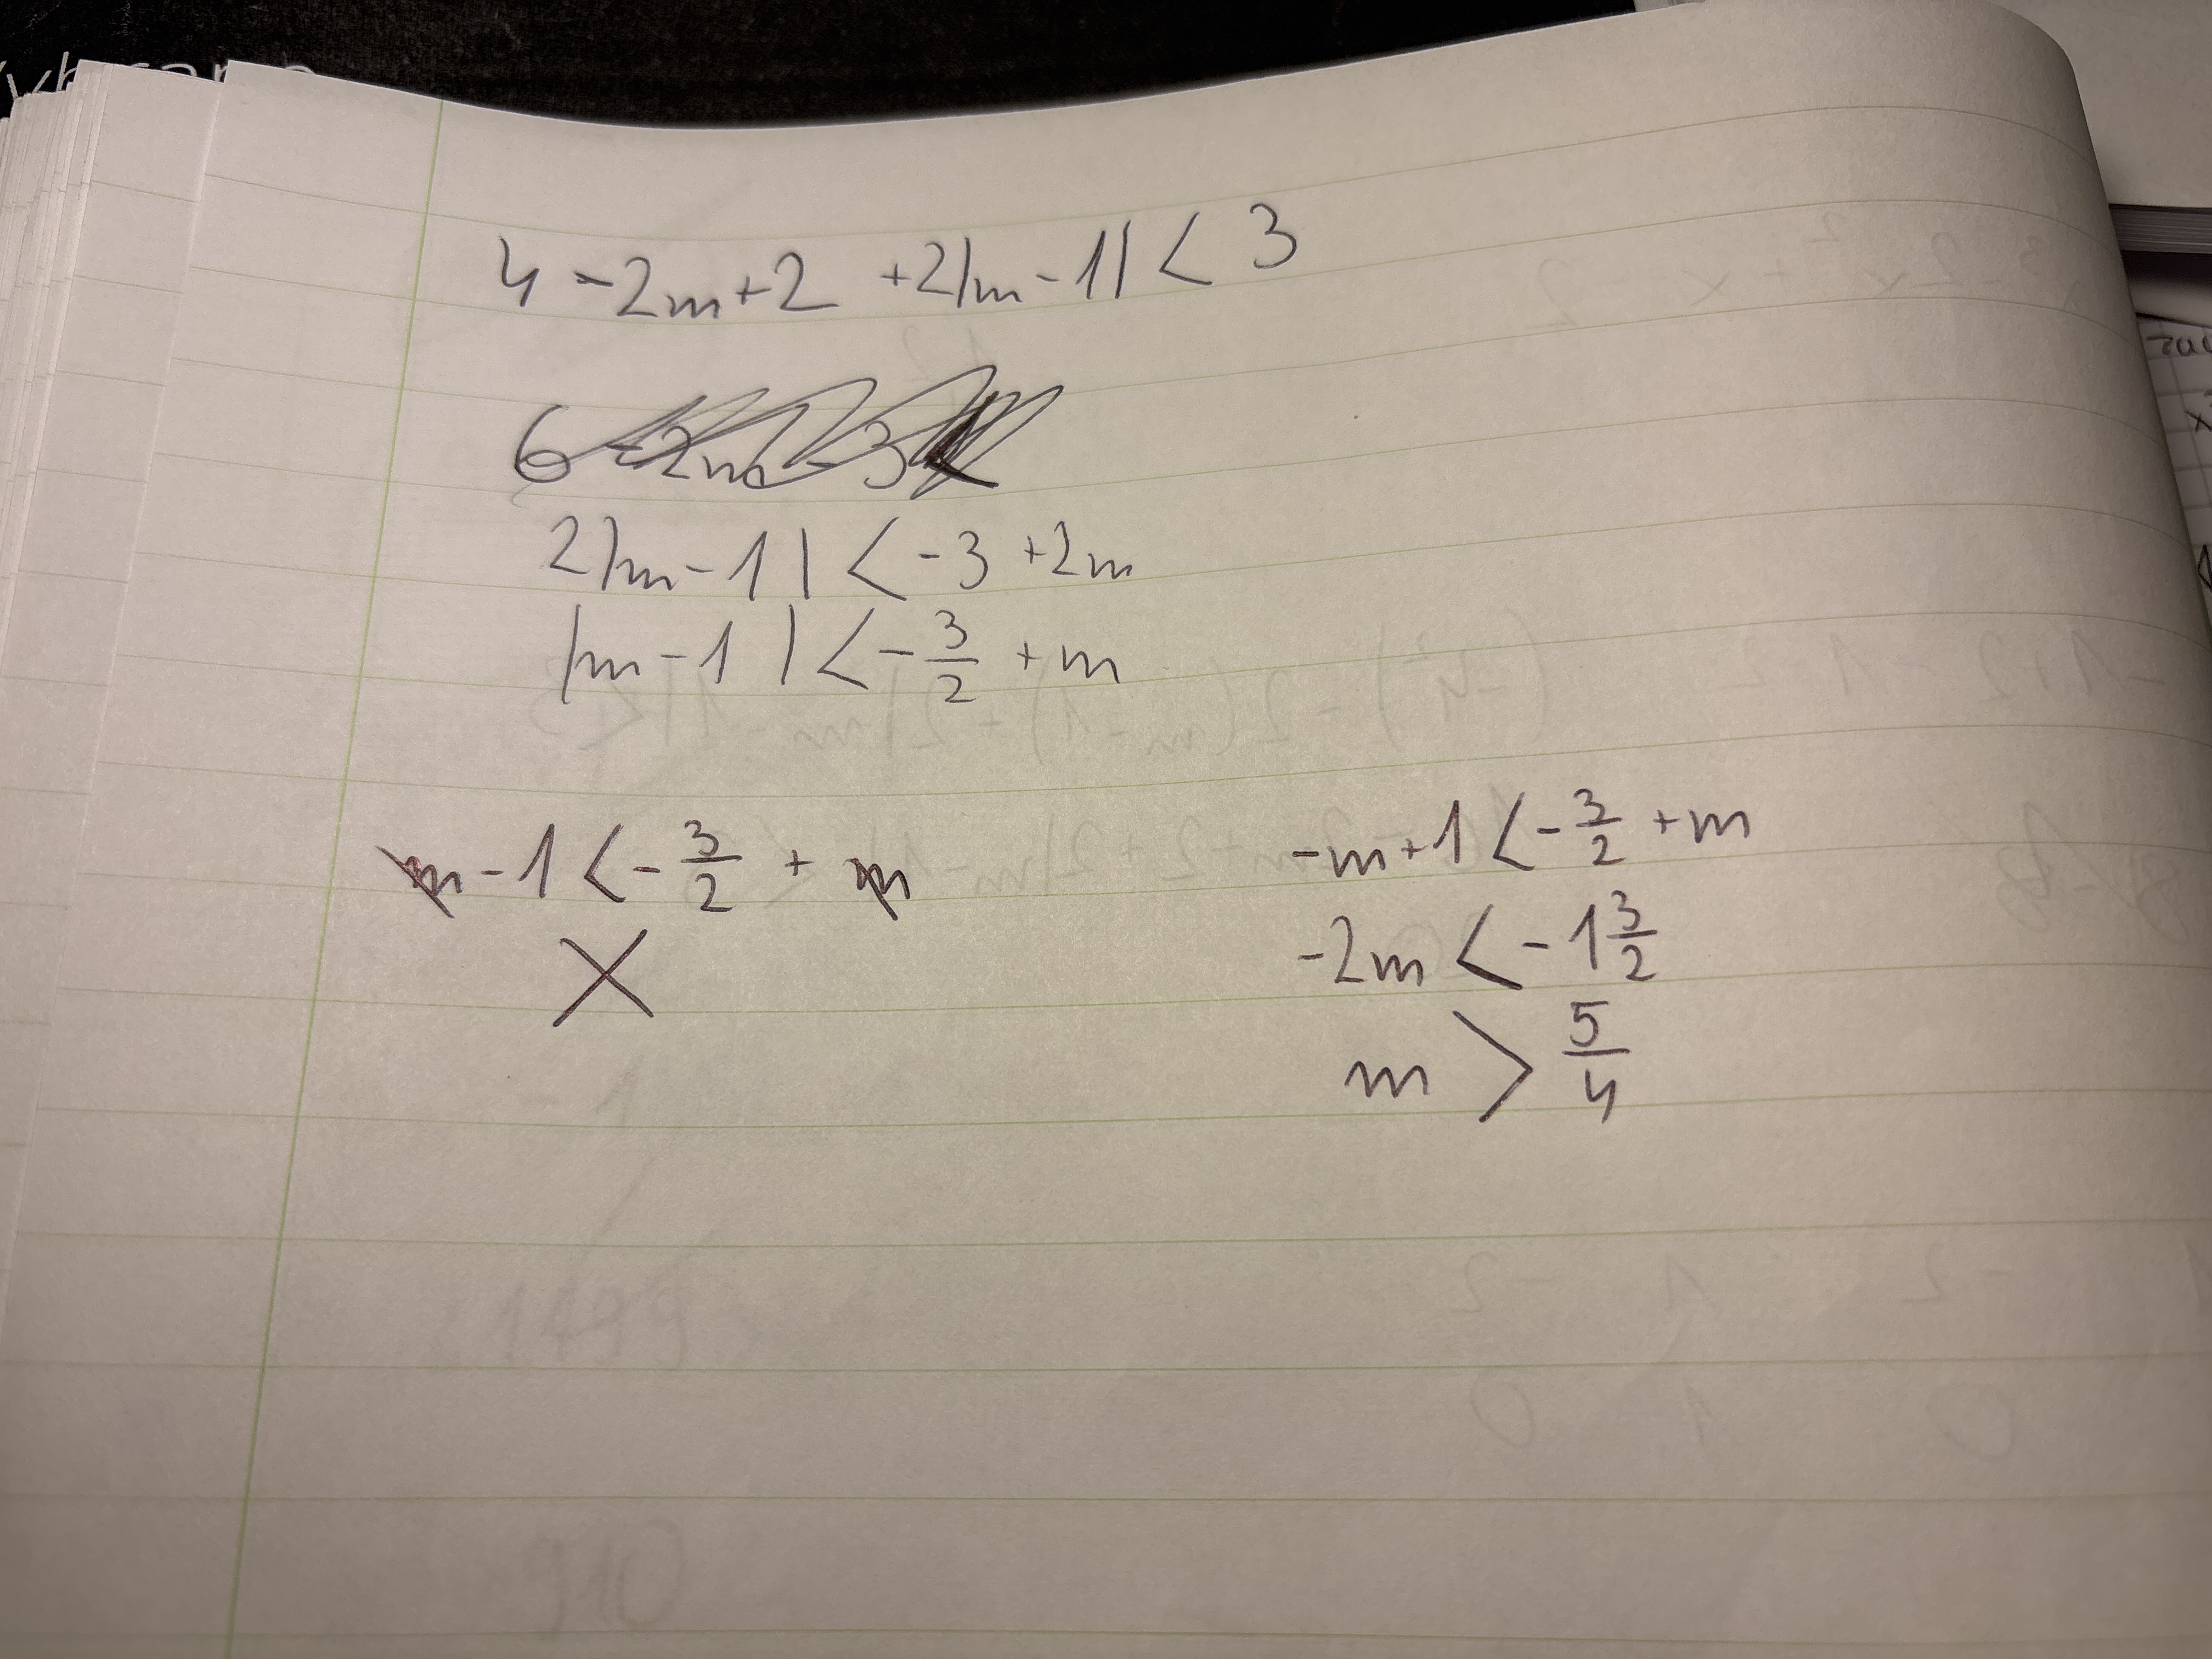 4 - 2m + 2 + 2|m - 1| < 3
2|m - 1| < -3 + 2m
|m - 1| < -3/2 + m
m - 1 < -3/2 + m
X
-m + 1 < -3/2 + m
-2m < -1 3/2
m > 5/4